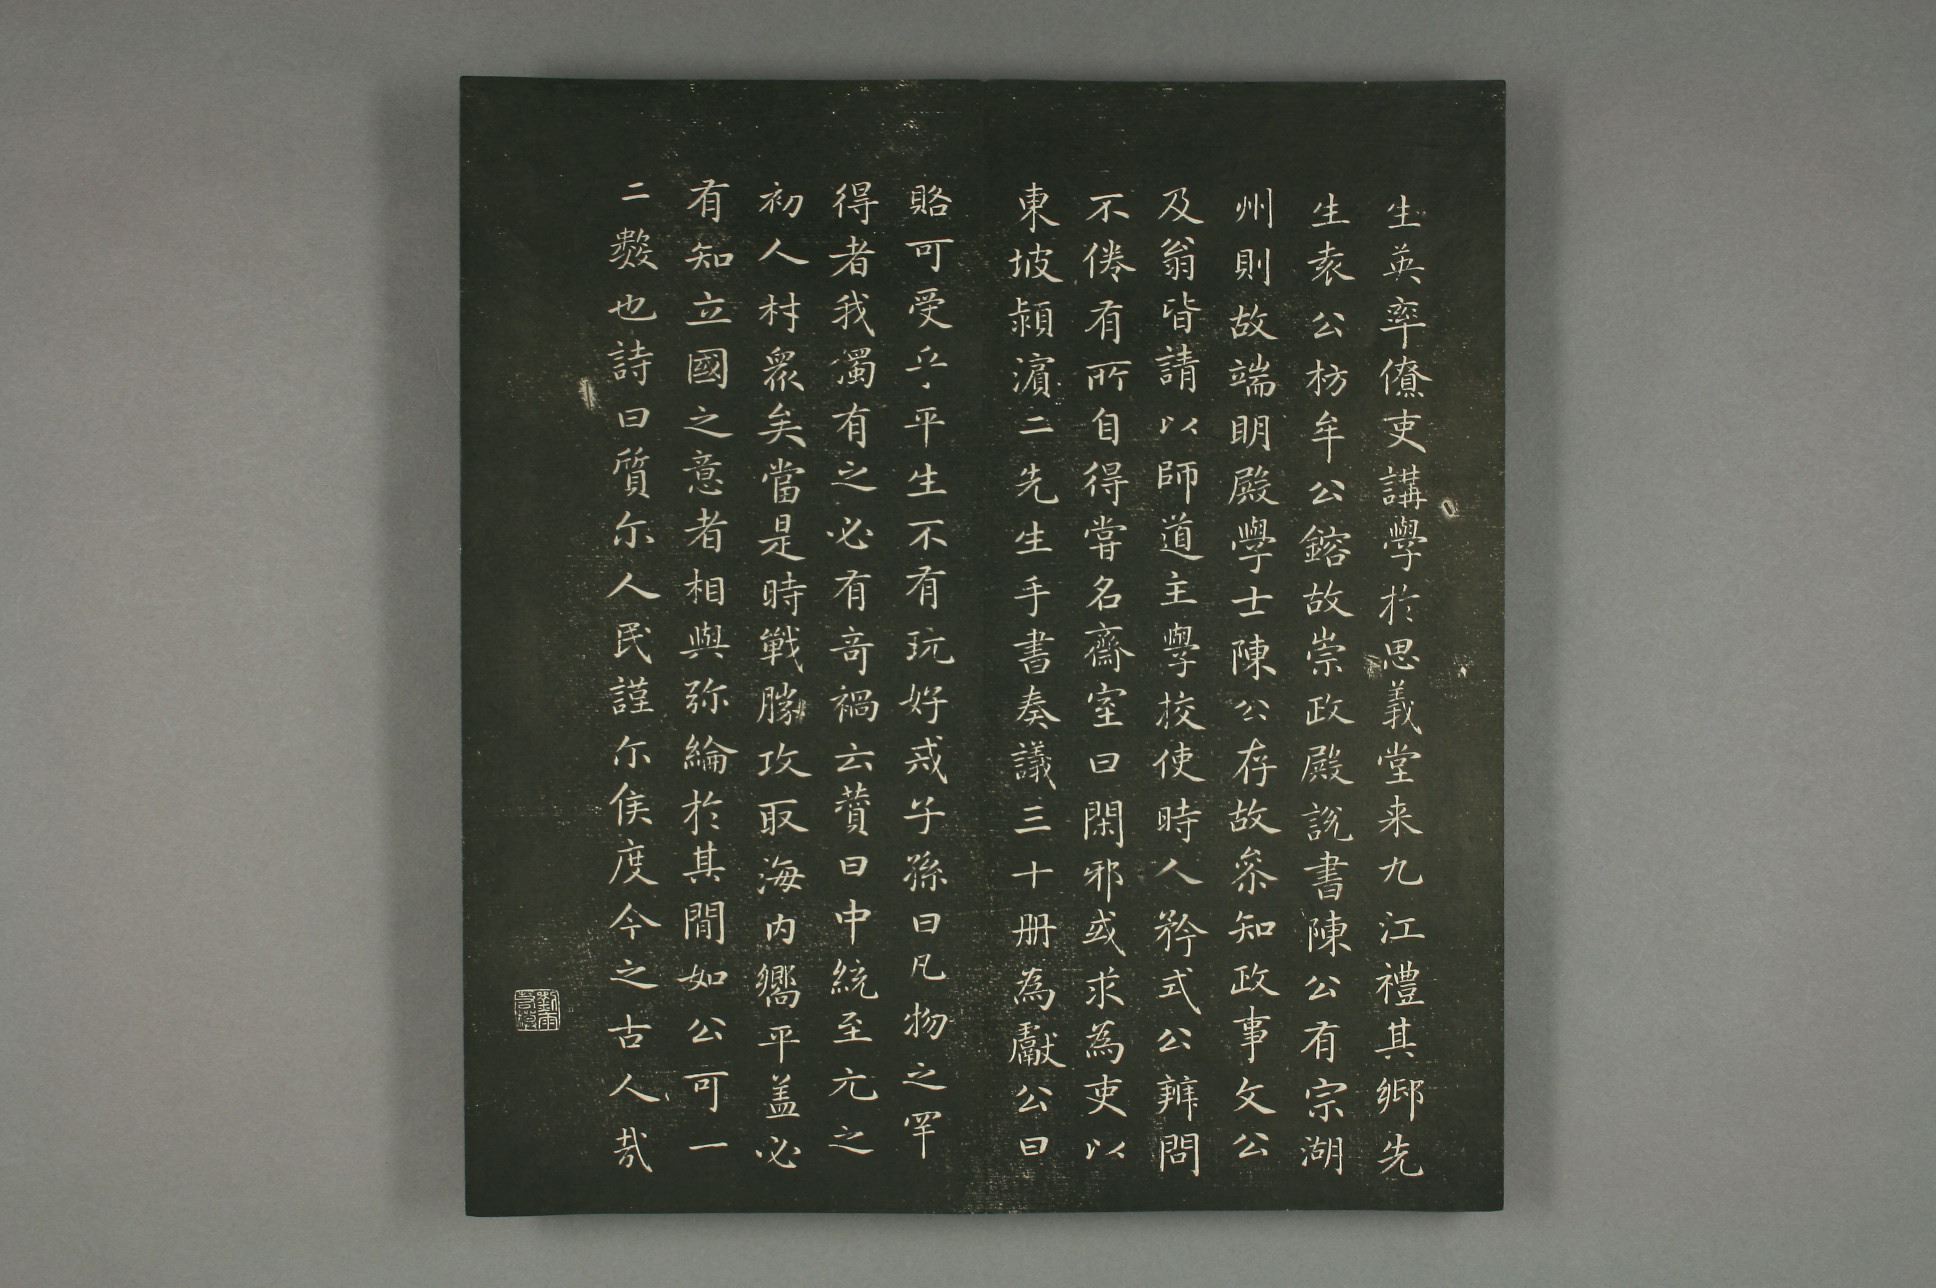 生英率僚吏講學於思義堂来九江禮其鄉先
生袁公枋牟公鎔故崇政殿說書陳公有宗湖
州則故端明殿學士陳公存故叅知政事文公
及翁皆請以師道主學校使時人矜式公辨問
不倦有所自得嘗名齋室曰閑邪或求為吏以
東坡潁濵二先生手書奏議三十册為獻公曰
賂可受乎平生不有玩好戒子孫曰凡物之罕
得者我獨有之必有竒禍云賛曰中統至元之
初人材衆矣當是時戰勝攻取海内嚮平盖必
有知立國之意者相與弥綸於其間如公可一
二數也詩曰質尒人民謹尒侯度今之古人哉